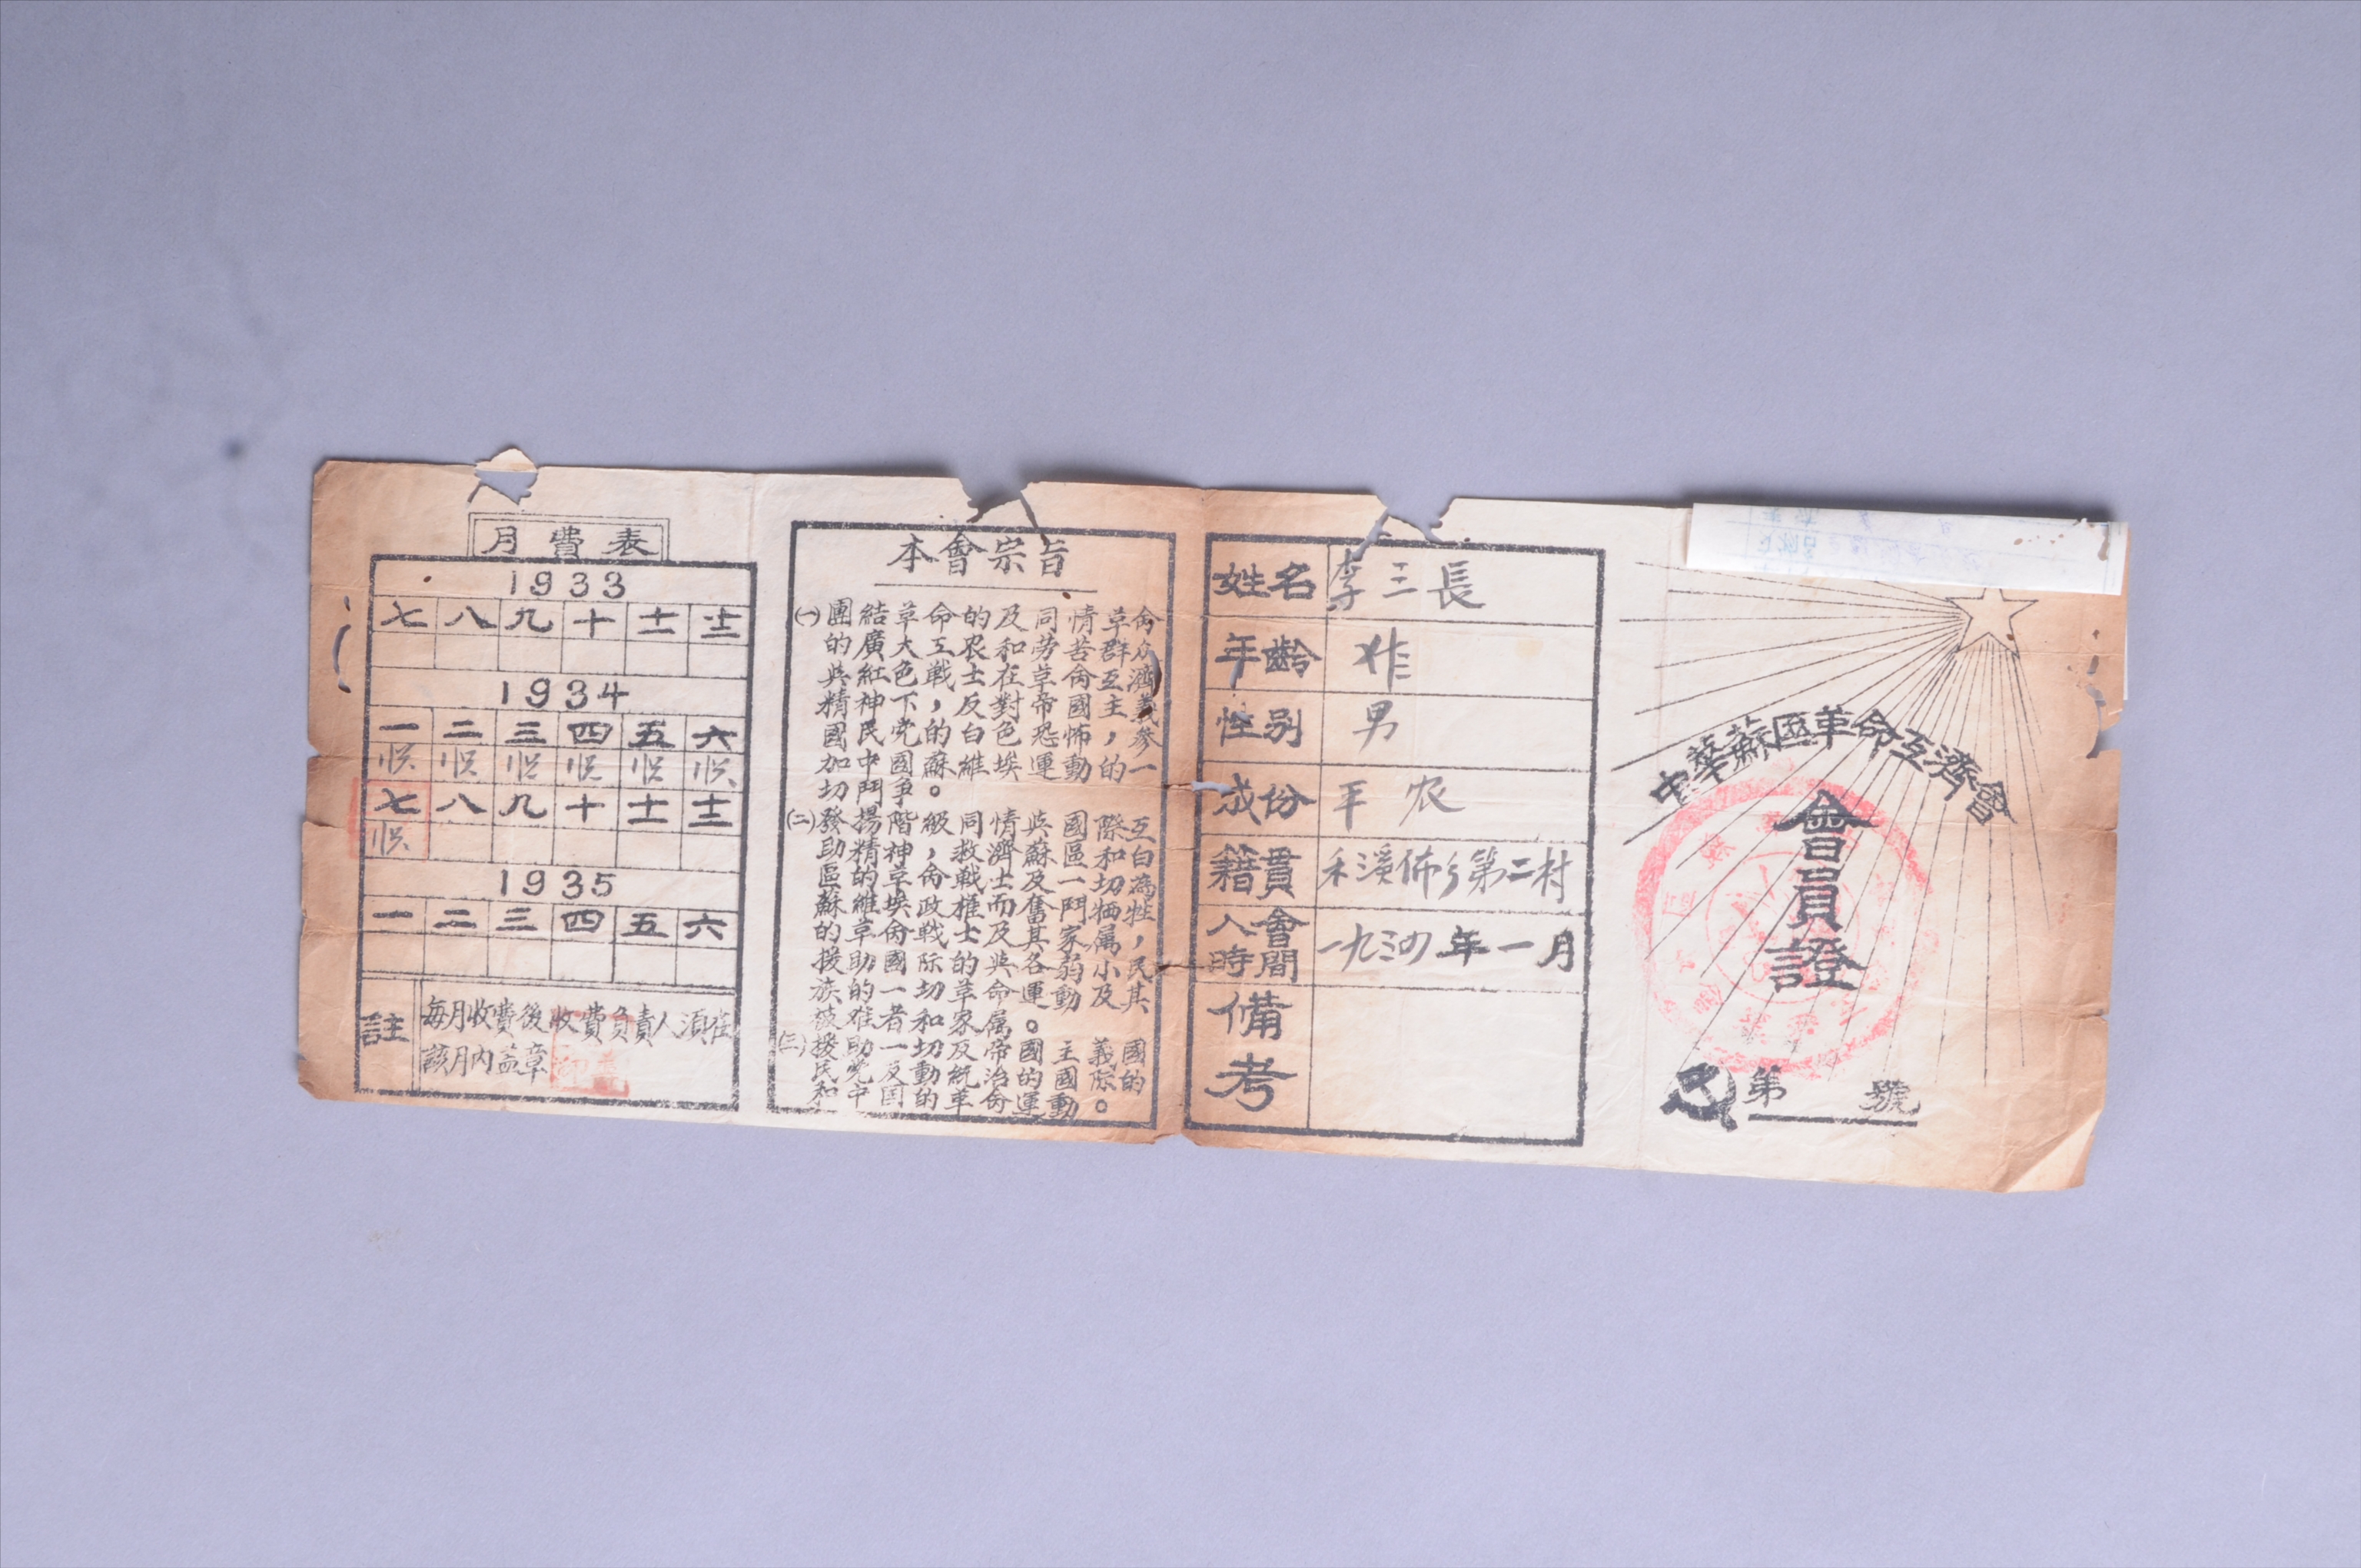 中華蘇區革命互濟會
會員證
第 號
姓名 李三長
年齡
性別 男
成份 农
籍貫 禾溪佈乡第二村
入會時間 一九三四年一月
備考
本會宗旨
(一)團結革命的及同情革命
的廣大工农和勞苦群众
與紅色戰士在革命互濟
精神下,反對帝國主義
國民党的白色恐怖,參
加中國蘇維埃運動的一
切鬥爭。
(二)發揚階級同情與國際互
助精神,救濟蘇區和白
區的革命戰士及一切為
蘇維埃政權而奮鬥牺牲
的革命戰士及其家属,
援助國际的與各弱小民
族的一切革命運動及其
被难者和家属。
(三)援助一切反帝國主義國
民党反動統治的國际的
和中国的革命運動。
月費表
1933
七 八 九 十 十一 十二
1934
一 二 三 四 五 六
七 八 九 十 十一 十二
1935
一 二 三 四 五 六
註
每月收費後收費負責人須在
該月内盖章